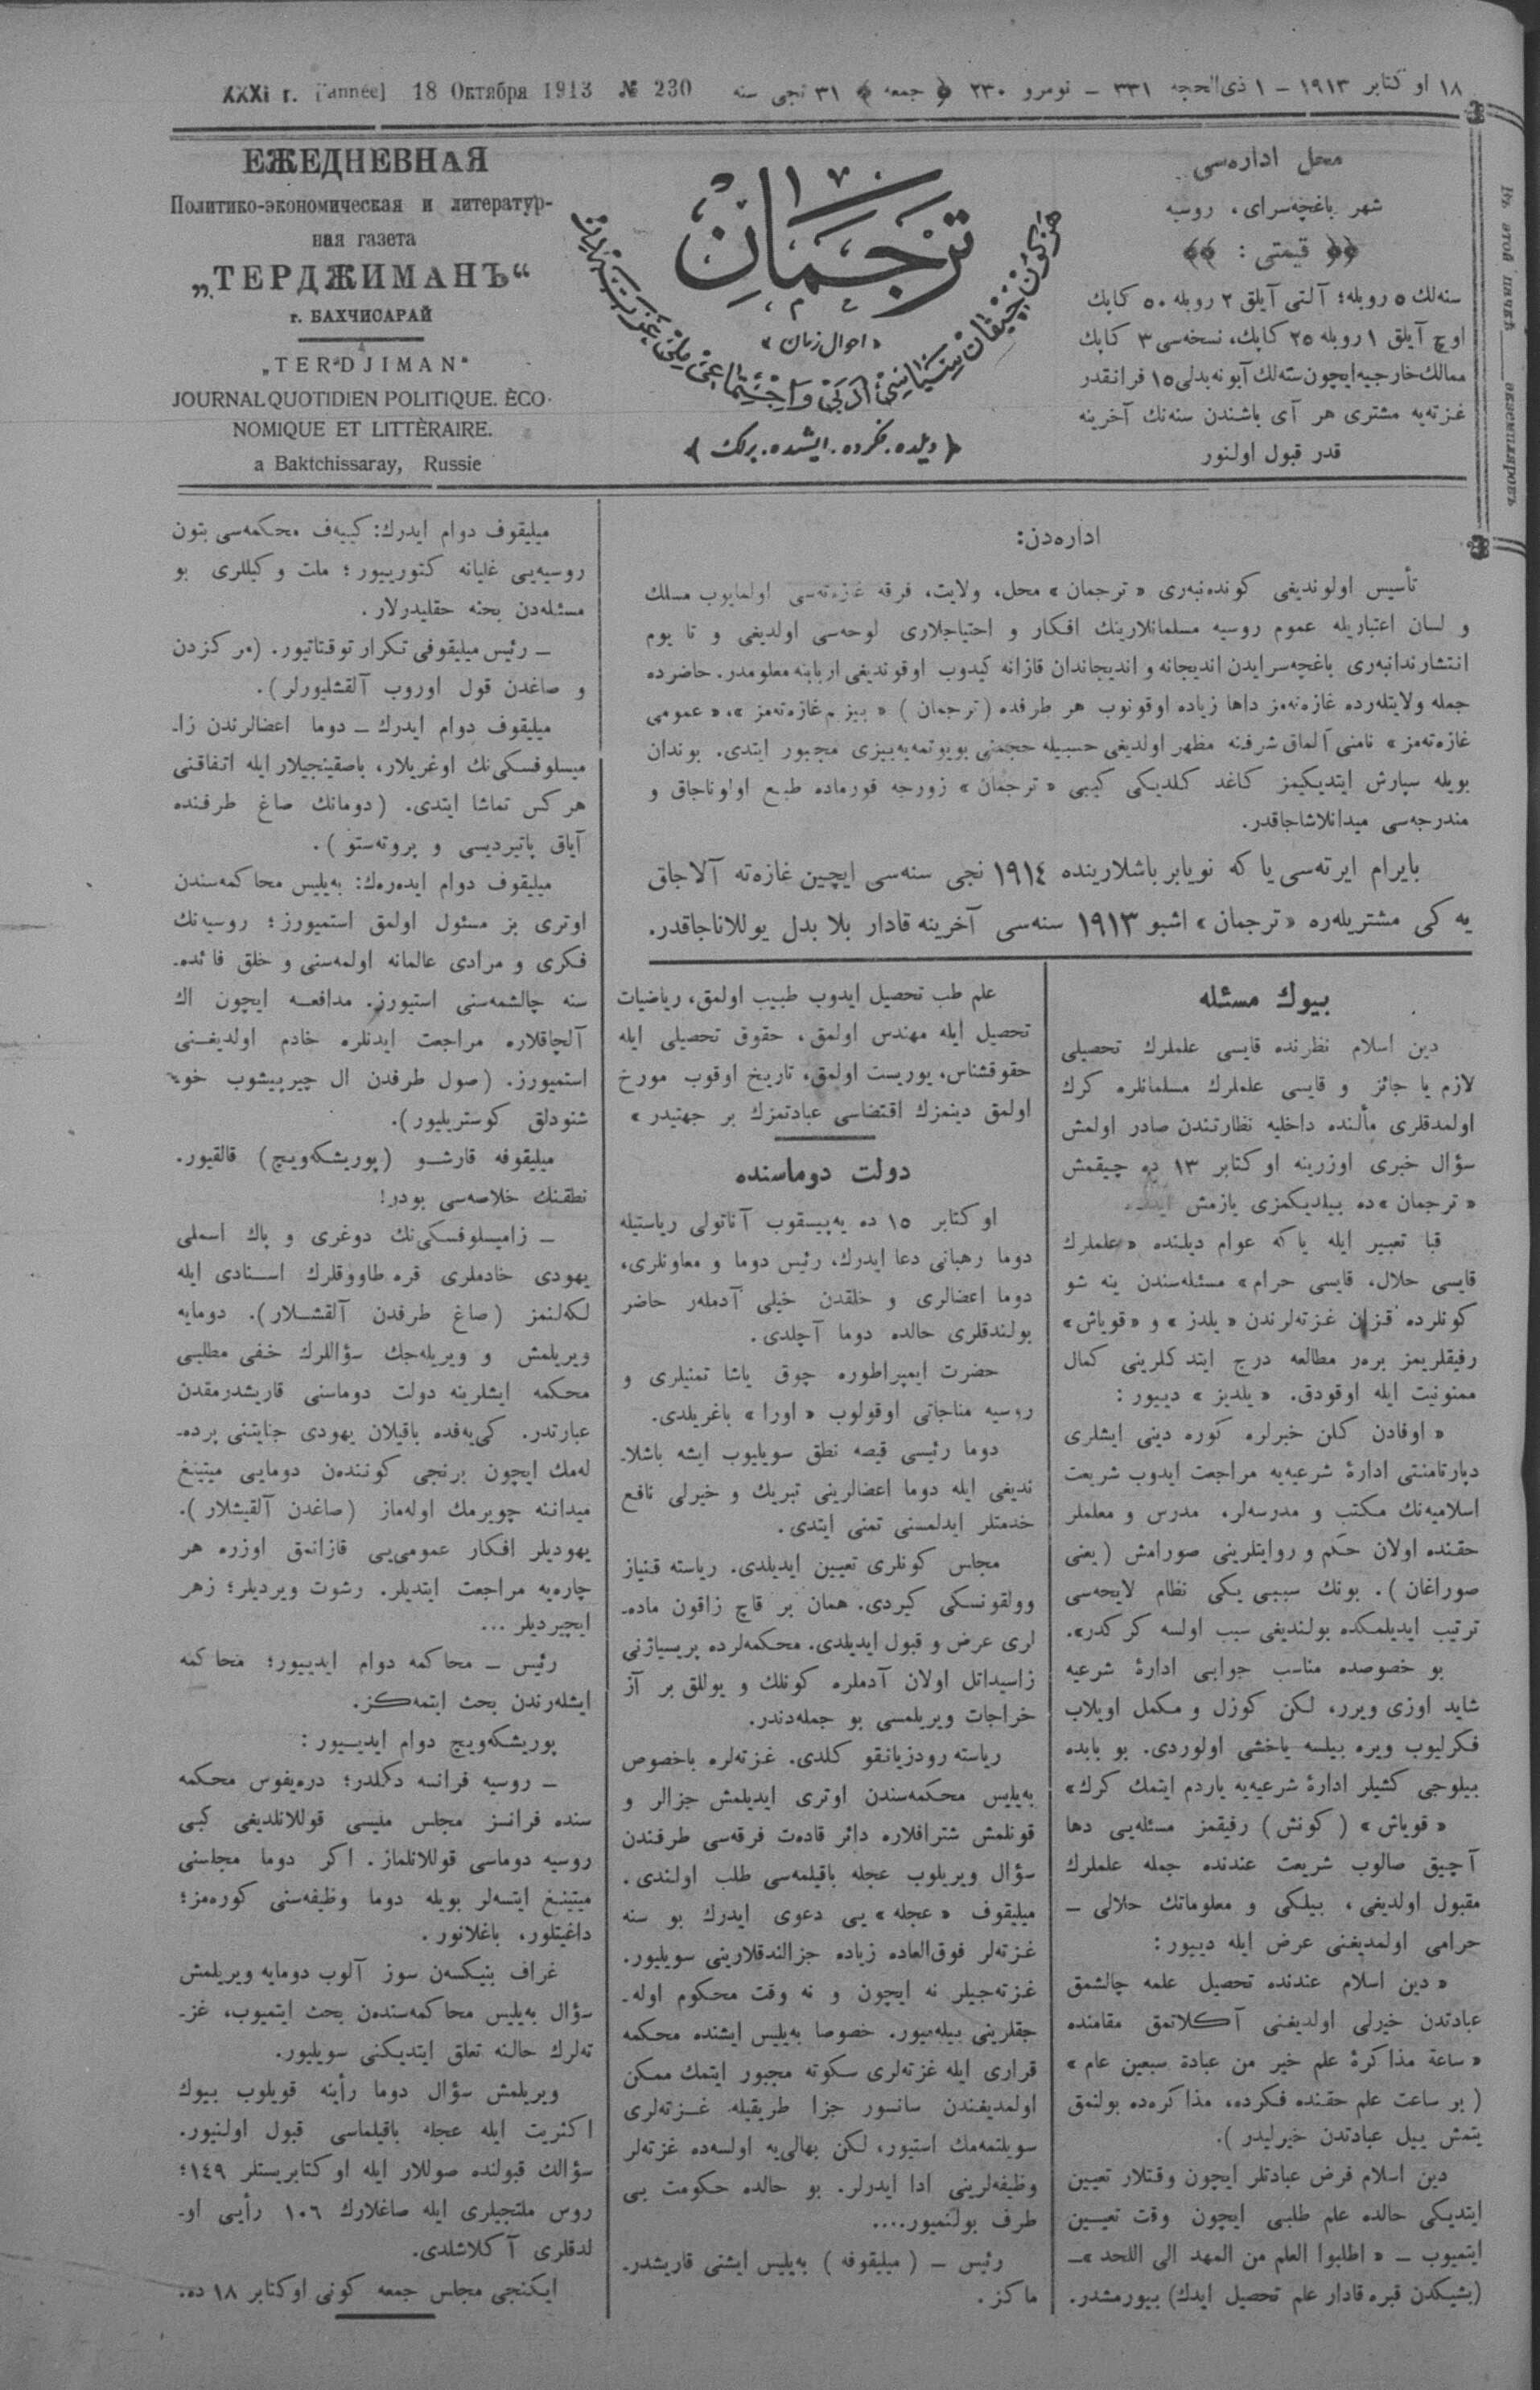 XXXI г. [année] 18 Октября 1913 № 230
١٨ او كتابر ١٩١٣ – ١ ذى‌الحجه ٣٣١ – نومرو ٢٣٠ ﴿ جمعه ﴾ ٣١ نجى سنه
ЕЖЕДНЕВНАЯ
Политико-экономическая и литератур-
ная газета
„ТЕРДЖИМАНЪ“
г. БАХЧИСАРАЙ
„TERDJIMAN“
JOURNAL QUOTIDIEN POLITIQUE. ÈCO-
NOMIQUE ET LITTÈRAIRE.
a Baktchissaray, Russie
ترجمان
« احوال زمان »
هر كون چيقان سياسى، ادبى و اجتماعى ملى غزته‌در
﴿ ديلده. فكرده. ايشده. برلك ﴾
محل اداره‌سى
شهر باغچه‌سراى، روسيه
﴿﴿ قيمتى : ﴾﴾
سنه‌لك ٥ روبله؛ آلتى آيلق ٢ روبله ٥٠ كاپك
اوچ آيلق ١ روبله ٢٥ كاپك، نسخه‌سى ٣ كاپك
ممالك خارجيه ايچون سنه‌لك آبونه بدلى ١٥ فرانقدر
غزته‌يه مشترى هر آى باشندن سنه‌نك آخرينه
قدر قبول اولنور
اداره‌دن:
تأسيس اولونديغى كونده‌نبه‌رى « ترجمان » محل، ولايت، فرقه غازه‌ته‌سى اولمايوب مسلك
و لسان اعتباريله عموم روسيه مسلمانلارينك افكار و احتياجلارى لوحه‌سى اولديغى و تا يوم
انتشارندانبه‌رى باغچه‌سرايدن انديجانه و انديجاندان قازانه كيدوب اوقونديغى اربابنه معلومدر. حاضرده
جمله ولايتله‌رده غازه‌ته‌مز داها زياده اوقونوب هر طرفده ( ترجمان ) « بيزم غازه‌ته‌مز »، « عمومى
غازه‌ته‌مز » نامنى آلماق شرفنه مظهر اولديغى حسبيله حجمنى بويوتمه‌يه بيزى مجبور ايتدى. بوندان
بويله سپارش ايتديكيمز كاغد كلديكى كيبى « ترجمان » زورجه فورماده طبع اولوناجاق و
مندرجه‌سى ميدانلاشاجاقدر.
بايرام ايرته‌سى يا كه نويابر باشلارينده ١٩١٤ نجى سنه‌سى ايچين غازه‌ته آلاجاق
يه كى مشتريله‌ره « ترجمان » اشبو ١٩١٣ سنه‌سى آخرينه قادار بلا بدل يوللاناجاقدر.
بيوك مسئله
دين اسلام نظرنده قايسى علملرك تحصيلى
لازم يا جائز و قايسى علملرك مسلمانلره كرك
اولمدقلرى مألنده داخليه نظارتندن صادر اولمش
سؤال خبرى اوزرينه اوكتابر ١٣ ده چيقمش
« ترجمان » ده بيلديكمزى يازمش
قبا تعبير ايله ياكه عوام ديلنده « علملرك
قايسى حلال، قايسى حرام » مسئله‌سندن ينه شو
كونلرده قزان غزته‌لرندن « يلدز » و « قوياش »
رفيقلريمز برەر مطالعه درج ايتدكلرينى كمال
ممنونيت ايله اوقودق. « يلديز » دييور :
« اوفادن كلن خبرلره كوره دينى ايشلرى
دپارتامنتى ادارۀ شرعيه‌يه مراجعت ايدوب شريعت
اسلاميه‌نك مكتب و مدرسه‌لر، مدرس و معلملر
حقنده اولان حكم و روايتلرينى صورامش (يعنى
صوراغان ). بونك سببى يكى نظام لايحه‌سى
ترتيب ايديلمكده بولنديغى سبب اولسه كركدر».
بو خصوصده مناسب جوابى ادارۀ شرعيه
شايد اوزى ويرر، لكن كوزل و مكمل اويلاب
فكرليوب ويره بيلسه ياخشى اولوردى. بو بابده
بيلوجى كشيلر ادارۀ شرعيه‌يه ياردم ايتمك كرك »
« قوياش » ( كونش ) رفيقمز مسئله‌يى دها
آچيق صالوب شريعت عندنده جمله علملرك
مقبول اولديغى، بيلكى و معلوماتك حلالى –
حرامى اولمديغنى عرض ايله دييور :
« دين اسلام عندنده تحصيل علمه چالشمق
عبادتدن خيرلى اولديغنى آكلاتمق مقامنده
« ساعة مذاكرۀ علم خير من عبادة سبعين عام »
( بر ساعت علم حقنده فكرده، مذاكره‌ده بولنمق
يتمش ييل عبادتدن خيرليدر ).
دين اسلام فرض عبادتلر ايچون وقتلار تعيين
ايتديكى حالده علم طلبى ايچون وقت تعيين
ايتميوب – « اطلبوا العلم من المهد الى اللحد »–
(بشيكدن قبره قادار علم تحصيل ايدك) بيورمشدر.
علم طب تحصيل ايدوب طبيب اولمق، رياضيات
تحصيل ايله مهندس اولمق، حقوق تحصيلى ايله
حقوقشناس، يوريست اولمق، تاريخ اوقوب مورخ
اولمق دينمزك اقتضاسى عبادتمزك بر جهتيدر »
دولت دوماسنده
اوكتابر ١٥ ده يه‌پيسقوب آناتولى رياستيله
دوما رهبانى دعا ايدرك، رئيس دوما و معاونلرى،
دوما اعضالرى و خلقدن خيلى آدملەر حاضر
بولندقلرى حالده دوما آچلدى.
حضرت ايمپراطوره چوق ياشا تمنيلرى و
روسيه مناجاتى اوقولوب « اورا » باغريلدى.
دوما رئيسى قيصه نطق سويليوب ايشه باشلا-
نديغى ايله دوما اعضالرينى تبريك و خيرلى نافع
خدمتلر ايدلمسنى تمنى ايتدى.
مجلس كونلرى تعيين ايديلدى. رياسته قنياز
وولقونسكى كيردى. همان بر قاچ زاقون ماده-
لرى عرض و قبول ايديلدى. محكمه‌لرده پريسياژنى
زاسيداتل اولان آدملره كونلك و يوللق بر آز
خراجات ويريلمسى بو جمله‌دندر.
رياسته رودزيانقو كلدى. غزته‌لره باخصوص
به‌يليس محكمه‌سندن اوترى ايديلمش جزالر و
قونلمش شترافلاره دائر قادەت فرقه‌سى طرفندن
سؤال ويريلوب عجله باقيلمه‌سى طلب اولندى.
ميليقوف « عجله » يى دعوى ايدرك بو سنه
غزته‌لر فوق‌العاده زياده جزالندقلارينى سويليور.
غزته‌جيلر نه ايچون و نه وقت محكوم اوله-
جقلرينى بيله‌ميور. خصوصا به‌يليس ايشنده محكمه
قرارى ايله غزته‌لرى سكوته مجبور ايتمك ممكن
اولمديغندن سانسور جزا طريقيله غزته‌لرى
سويلتمه‌مك استيور، لكن بهالى‌يه اولسه‌ده غزته‌لر
وظيفه‌لرينى ادا ايدرلر. بو حالده حكومت بى
طرف بولنميور....
رئيس – ( ميليقوفه ) به‌يليس ايشنى قاريشدر-
ماكز .
ميليقوف دوام ايدرك: كييه‌ف محكمه‌سى بتون
روسيه‌يى غليانه كتورييور ؛ ملت وكيللرى بو
مسئله‌دن بحثه حقليدرلار.
– رئيس ميليقوفى تكرار توقتاتيور. (مركزدن
و صاغدن قول اوروب آلقشليورلر).
ميليقوف دوام ايدرك – دوما اعضالرندن زا-
ميسلوفسكى‌نك اوغريلار، باصقينجيلار ايله اتفاقنى
هركس تماشا ايتدى. (دومانك صاغ طرفنده
آياق پاتيرديسى و پروته‌ستو ).
ميليقوف دوام ايده‌رەك: به‌يليس محاكمه‌سندن
اوترى بز مسئول اولمق استميورز ؛ روسيه‌نك
فكرى و مرادى عالمانه اولمه‌سنى و خلق فائده-
سنه چالشمه‌سنى استيورز. مدافعه ايچون اك
آلچاقلاره مراجعت ايدنلره خادم اولديغنى
استميورز. (صول طرفدن ال چيرپيشوب خو-
شنودلق كوستريليور).
ميليقوفه قارشو (پوريشكه‌ويچ) قالقيور.
نطقنك خلاصه‌سى بودر!
– زاميسلوفسكى‌نك دوغرى و پاك اسملى
يهودى خادملرى قره طاووقلرك اسنادى ايله
لكه‌لنمز (صاغ طرفدن آلقشلار). دومايه
ويريلمش و ويريله‌جك سؤاللرك خفى مطلبى
محكمه ايشلرينه دولت دوماسنى قاريشدرمقدن
عبارتدر. كى‌يه‌فده باقيلان يهودى جنايتنى پرده-
له‌مك ايچون برنجى كوننده‌ن دومايى ميتينغ
ميداننه چويرمك اوله‌ماز (صاغدن آلقيشلار ).
يهوديلر افكار عمومى‌يى قازانمق اوزره هر
چاره‌يه مراجعت ايتديلر. رشوت ويرديلر؛ زهر
ايچيرديلر ...
رئيس – محاكمه دوام ايدييور؛ محاكمه
ايشله‌رندن بحث ايتمه‌ڭز.
پوريشكه‌ويچ دوام ايديـيور :
– روسيه فرانسه دكلدر؛ دره‌يفوس محكمه
سنده فرانسز مجلس مليسى قوللانلديغى كبى
روسيه دوماسى قوللانلماز. اكر دوما مجلسنى
ميتينغ ايتسه‌لر بويله دوما وظيفه‌سنى كوره‌مز؛
داغيتلور، باغلانور .
غراف بنيكسەن سوز آلوب دومايه ويريلمش
سؤال به‌يليس محاكمه‌سنده‌ن بحث ايتميوب، غز-
ته‌لرك حالنه تعلق ايتديكنى سويليور.
ويريلمش سؤال دوما رأينه قويلوب بيوك
اكثريت ايله عجله باقيلماسى قبول اولنيور.
سؤالك قبولنده صوللار ايله اوكتابريستلر ١٤٩؛
روس ملتجيلرى ايله صاغلارك ١٠٦ رأيى او-
لدقلرى آكلاشلدى.
ايكنجى مجلس جمعه كونى اوكتابر ١٨ ده.